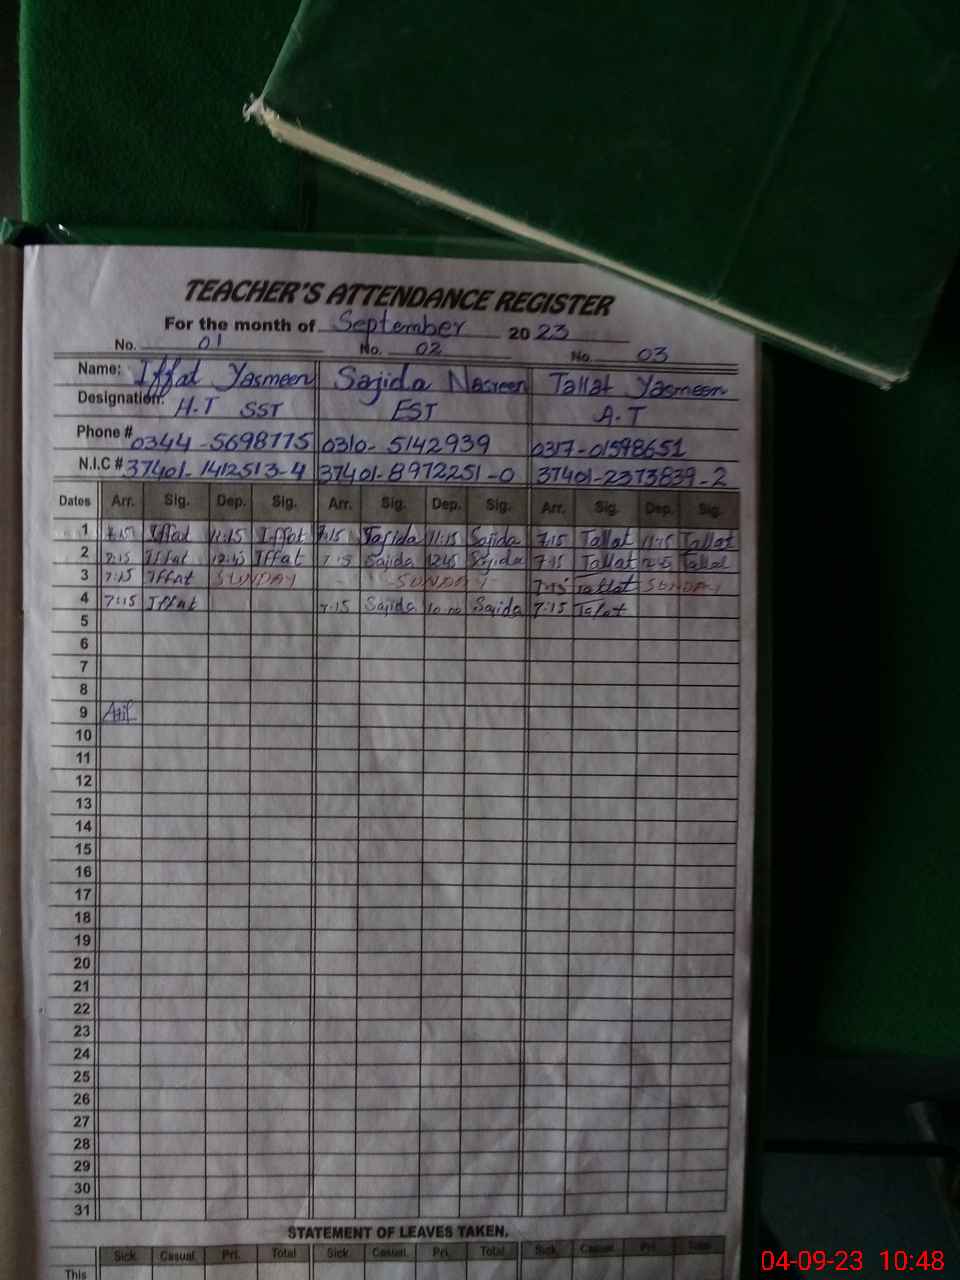 TEACHER'S ATTENDANCE REGISTER
For the month of September 2023
No. 01 No. 02 No. 03
Name: Iffat Yasmeen Sajida Nasreen Tallat Yasmeen
Designation: H.T SST EST A.T
Phone # 0344-5698775 0310-5142939 0317-01598651
N.I.C # 37401-1412513-4 37401-8972251-0 37401-2373839-2
Dates Arr. Sig. Dep. Sig. Arr. Sig. Dep. Sig. Arr. Sig. Dep. Sig.
1 7:15 Iffat 11:15 Iffat 7:15 Sajida 11:15 Sajida 7:15 Tallat 11:15 Tallat
2 7:15 Iffat 12:45 Iffat 7:15 Sajida 1245 Sajida 7:15 Tallat Tallat
3 7:15 Iffat SUNDAY SUNDAY 7:15 Tallat SUNDAY
4 7:15 Iffat 7:15 Sajida Sajida 7:15 Talat
5
6
7
8
9
10
11
12
13
14
15
16
17
18
19
20
21
22
23
24
25
26
27
28
29
30
31
STATEMENT OF LEAVES TAKEN.
Sick. Casual. Pri. Total Sick. Casual. Pri. Total. Sick. Casual. Pri. Total
This
04-09-23 10:48